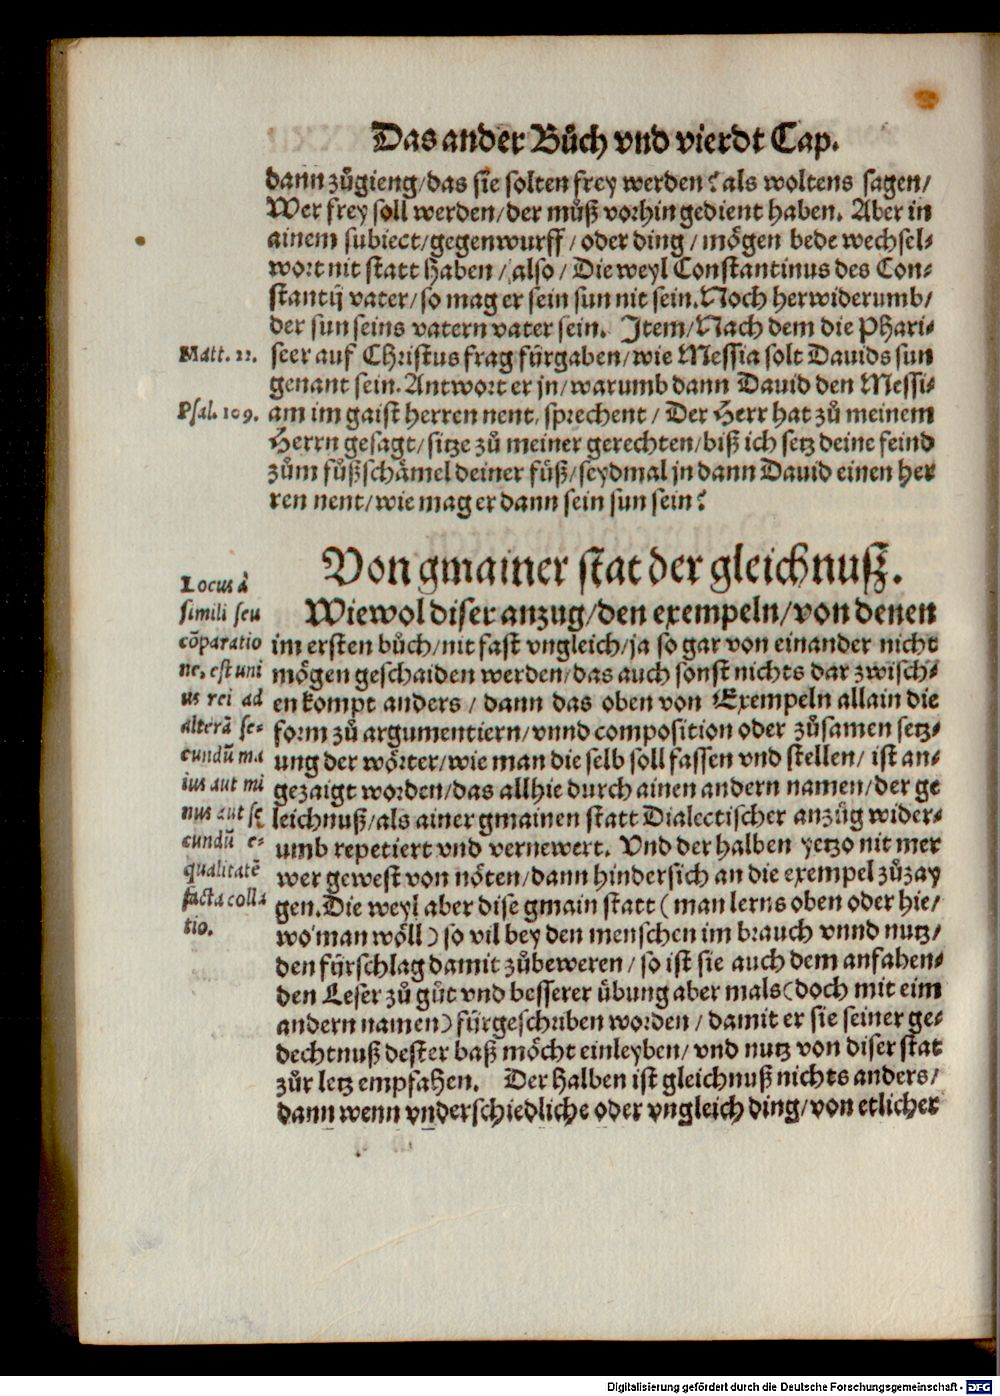 Das ander Bůch vnd vierdt Cap.
dann zůgieng/das sie solten frey werden? als woltens sagen/
Wer frey soll werden/der můß vorhin gedient haben. Aber in
ainem subiect/gegenwurff/oder ding/mögen bede wechsel-
wort nit statt haben/also/Die weyl Constantinus des Con-
stantij vater/so mag er sein sun nit sein. Noch herwiderumb/
der sun seins vatern vater sein. Item/Nach dem die Phari-
Matt. 22.
seer auf Christus frag fürgaben/wie Messia solt Dauids sun
genant sein. Antwort er jn/warumb dann Dauid den Messi-
Psal. 109.
am im gaist herren nent, sprechent/Der Herr hat zů meinem
Herrn gesagt/sitze zů meiner gerechten/biß ich setz deine feind
zům fůßschämel deiner fůß/seydmal jn dann Dauid einen her
ren nent/wie mag er dann sein sun sein?
Von gmainer stat der gleichnusz.
Locus à
simili seu
cōparatio
ne, est uni
us rei ad
alterā se-
cundū ma
ius aut mi
nus aut se
cundū e-
qualitatē
facta colla-
tio.
Wiewol diser anzug/den exempeln/von denen
im ersten bůch/nit fast vngleich/ja so gar von einander nicht
mögen geschaiden werden/das auch sonst nichts dar zwisch-
en kompt anders/dann das oben von Exempeln allain die
form zů argumentiern/vnnd composition oder zůsamen setz-
ung der wörter/wie man die selb soll fassen vnd stellen/ist an-
gezaigt worden/das allhie durch ainen andern namen/der ge
leichnuß/als ainer gmainen statt Dialectischer anzůg wider-
umb repetiert vnd vernewert. Vnd der halben yetzo nit mer
wer gewest von nöten/dann hindersich an die exempel zůzay
gen. Die weyl aber dise gmain statt (man lerns oben oder hie/
wo man wöll) so vil bey den menschen im brauch vnnd nutz/
den fürschlag damit zůbeweren/so ist sie auch dem anfahen-
den Leser zů gůt vnd besserer übung aber mals (doch mit eim
andern namen) fürgeschriben worden/damit er sie seiner ge-
dechtnuß dester baß möcht einleyben/vnd nutz von diser stat
zůr letz empfahen. Der halben ist gleichnuß nichts anders/
dann wenn vnderschiedliche oder vngleich ding/von etlicher
Digitalisierung gefördert durch die Deutsche Forschungsgemeinschaft - DFG